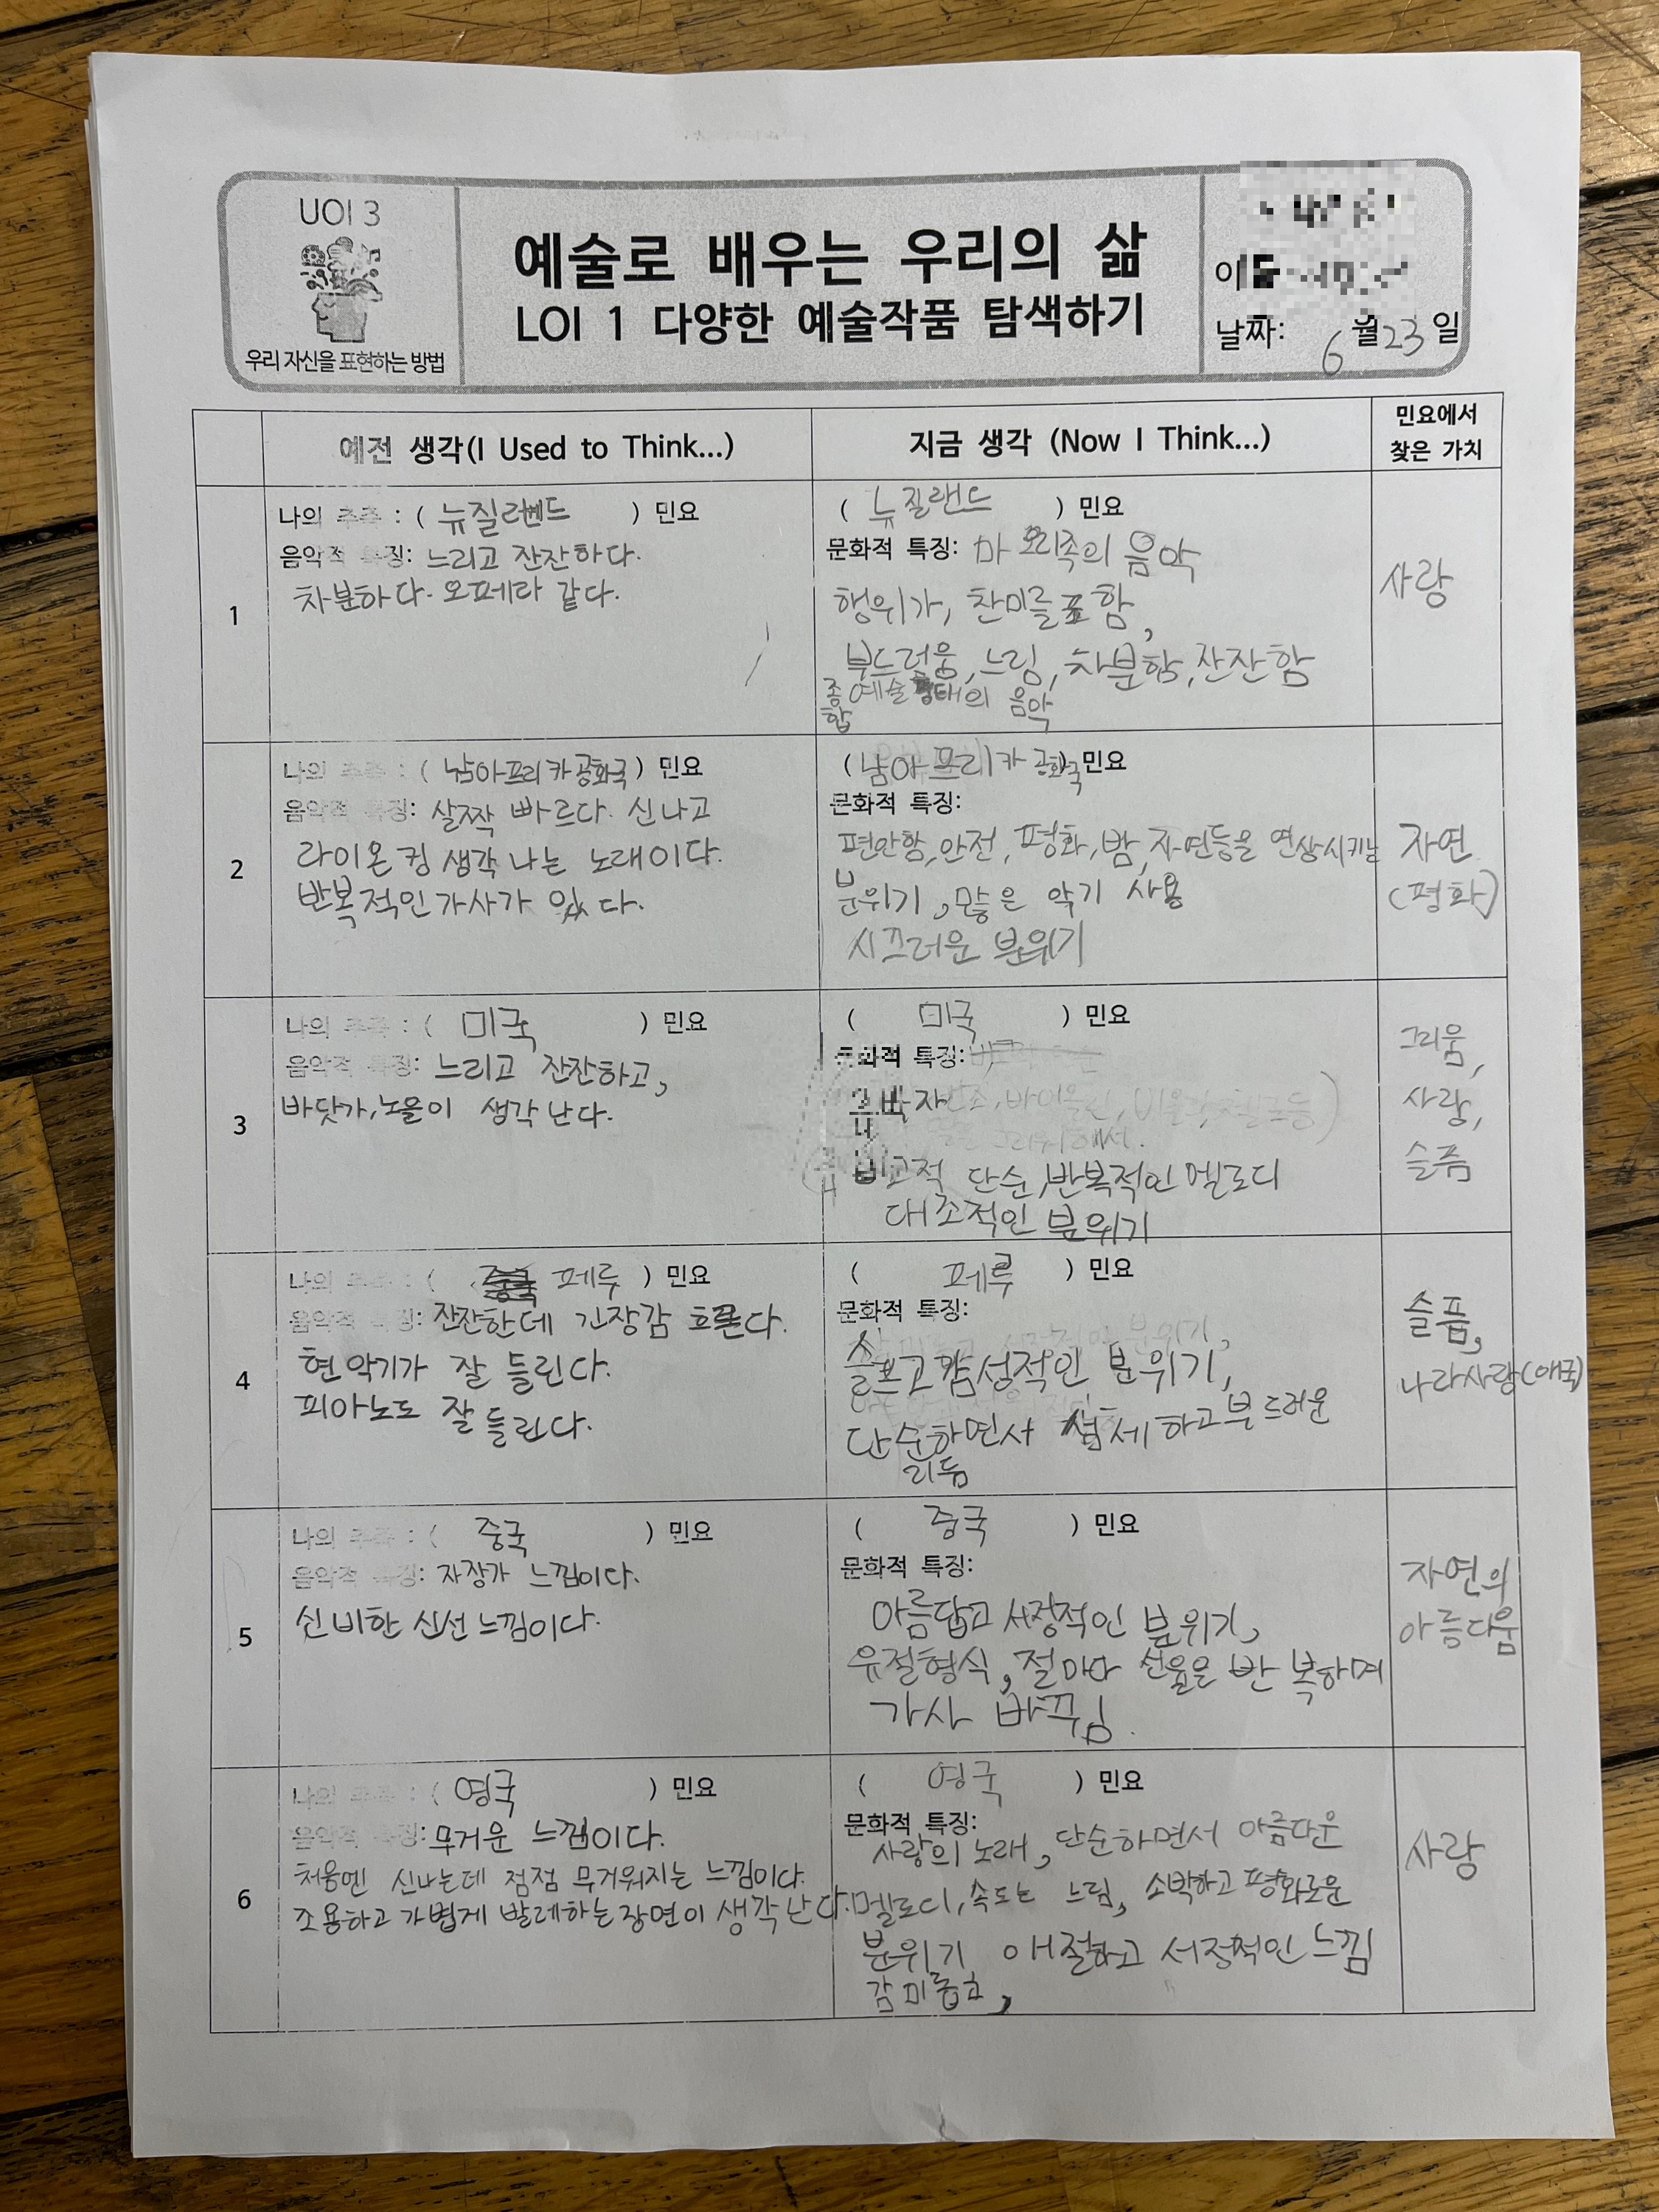 UOI 3
우리 자신을 표현하는 방법
예술로 배우는 우리의 삶
LOI 1 다양한 예술작품 탐색하기
날짜: 6월 23일
예전 생각(I Used to Think...)
지금 생각 (Now I Think...)
민요에서
찾은 가치
1
나의 추측 : ( 뉴질랜드 ) 민요
음악적 특징: 느리고 잔잔하다.
차분하다. 오페라 같다.
( 뉴질랜드 ) 민요
문화적 특징: 마오리족의 음악
행위가, 찬미를 포함,
부드러움, 느림, 차분함, 잔잔함
종합예술 형태의 음악
사랑
2
나의 추측 : ( 남아프리카공화국 ) 민요
음악적 특징: 살짝 빠르다. 신나고
라이온 킹 생각 나는 노래이다.
반복적인 가사가 있다.
(남아프리카 공화국) 민요
문화적 특징:
편안함, 안전, 평화, 밤, 자연등을 연상시키는
분위기, 많은 악기 사용
시끄러운 분위기
자연
(평화)
3
나의 추측 : ( 미국 ) 민요
음악적 특징: 느리고 잔잔하고,
바닷가, 노을이 생각 난다.
( 미국 ) 민요
문화적 특징:
박자
비교적 단순, 반복적인 멜로디
대조적인 분위기
그리움,
사랑,
슬픔
4
나의 추측 : ( 페루 ) 민요
음악적 특징: 잔잔한데 긴장감 흐른다.
현악기가 잘 들린다.
피아노도 잘 들린다.
( 페루 ) 민요
문화적 특징:
슬프고 감성적인 분위기,
단순하면서 섬세하고 부드러운
리듬
슬픔,
나라사랑(애국)
5
나의 추측 : ( 중국 ) 민요
음악적 특징: 자장가 느낌이다.
신비한 신선 느낌이다.
( 중국 ) 민요
문화적 특징:
아름답고 서정적인 분위기,
유절형식, 절마다 선율은 반복하며
가사 바뀌임.
자연의
아름다움
6
나의 추측 : ( 영국 ) 민요
음악적 특징: 무거운 느낌이다.
처음엔 신나는데 점점 무거워지는 느낌이다.
조용하고 가볍게 발레하는 장면이 생각 난다.
( 영국 ) 민요
문화적 특징:
사랑의 노래, 단순하면서 아름다운
멜로디, 속도는 느림, 소박하고 평화로운
분위기, 애절하고 서정적인 느낌
감미롭고,
사랑